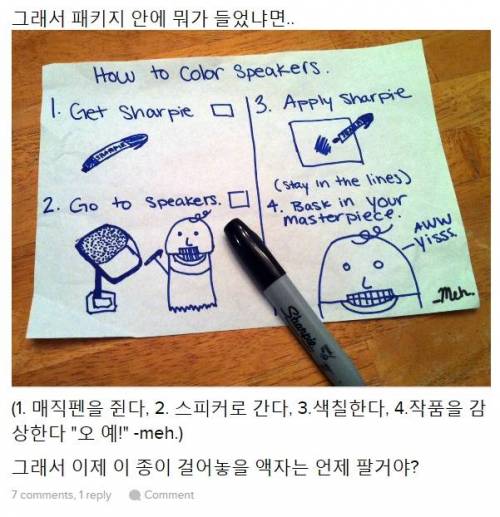 그래서 패키지 안에 뭐가 들었냐면..
How to Color Speakers.
1. Get Sharpie
SHARPIE
2. Go to Speakers.
3. Apply Sharpie
(stay in the lines)
4. Bask in your
masterpiece.
AWW
YISSS.
-Meh.
Sharpie
(1. 매직펜을 쥔다, 2. 스피커로 간다, 3.색칠한다, 4.작품을 감
상한다 "오 예!" -meh.)
그래서 이제 이 종이 걸어놓을 액자는 언제 팔거야?
7 comments, 1 reply
Comment